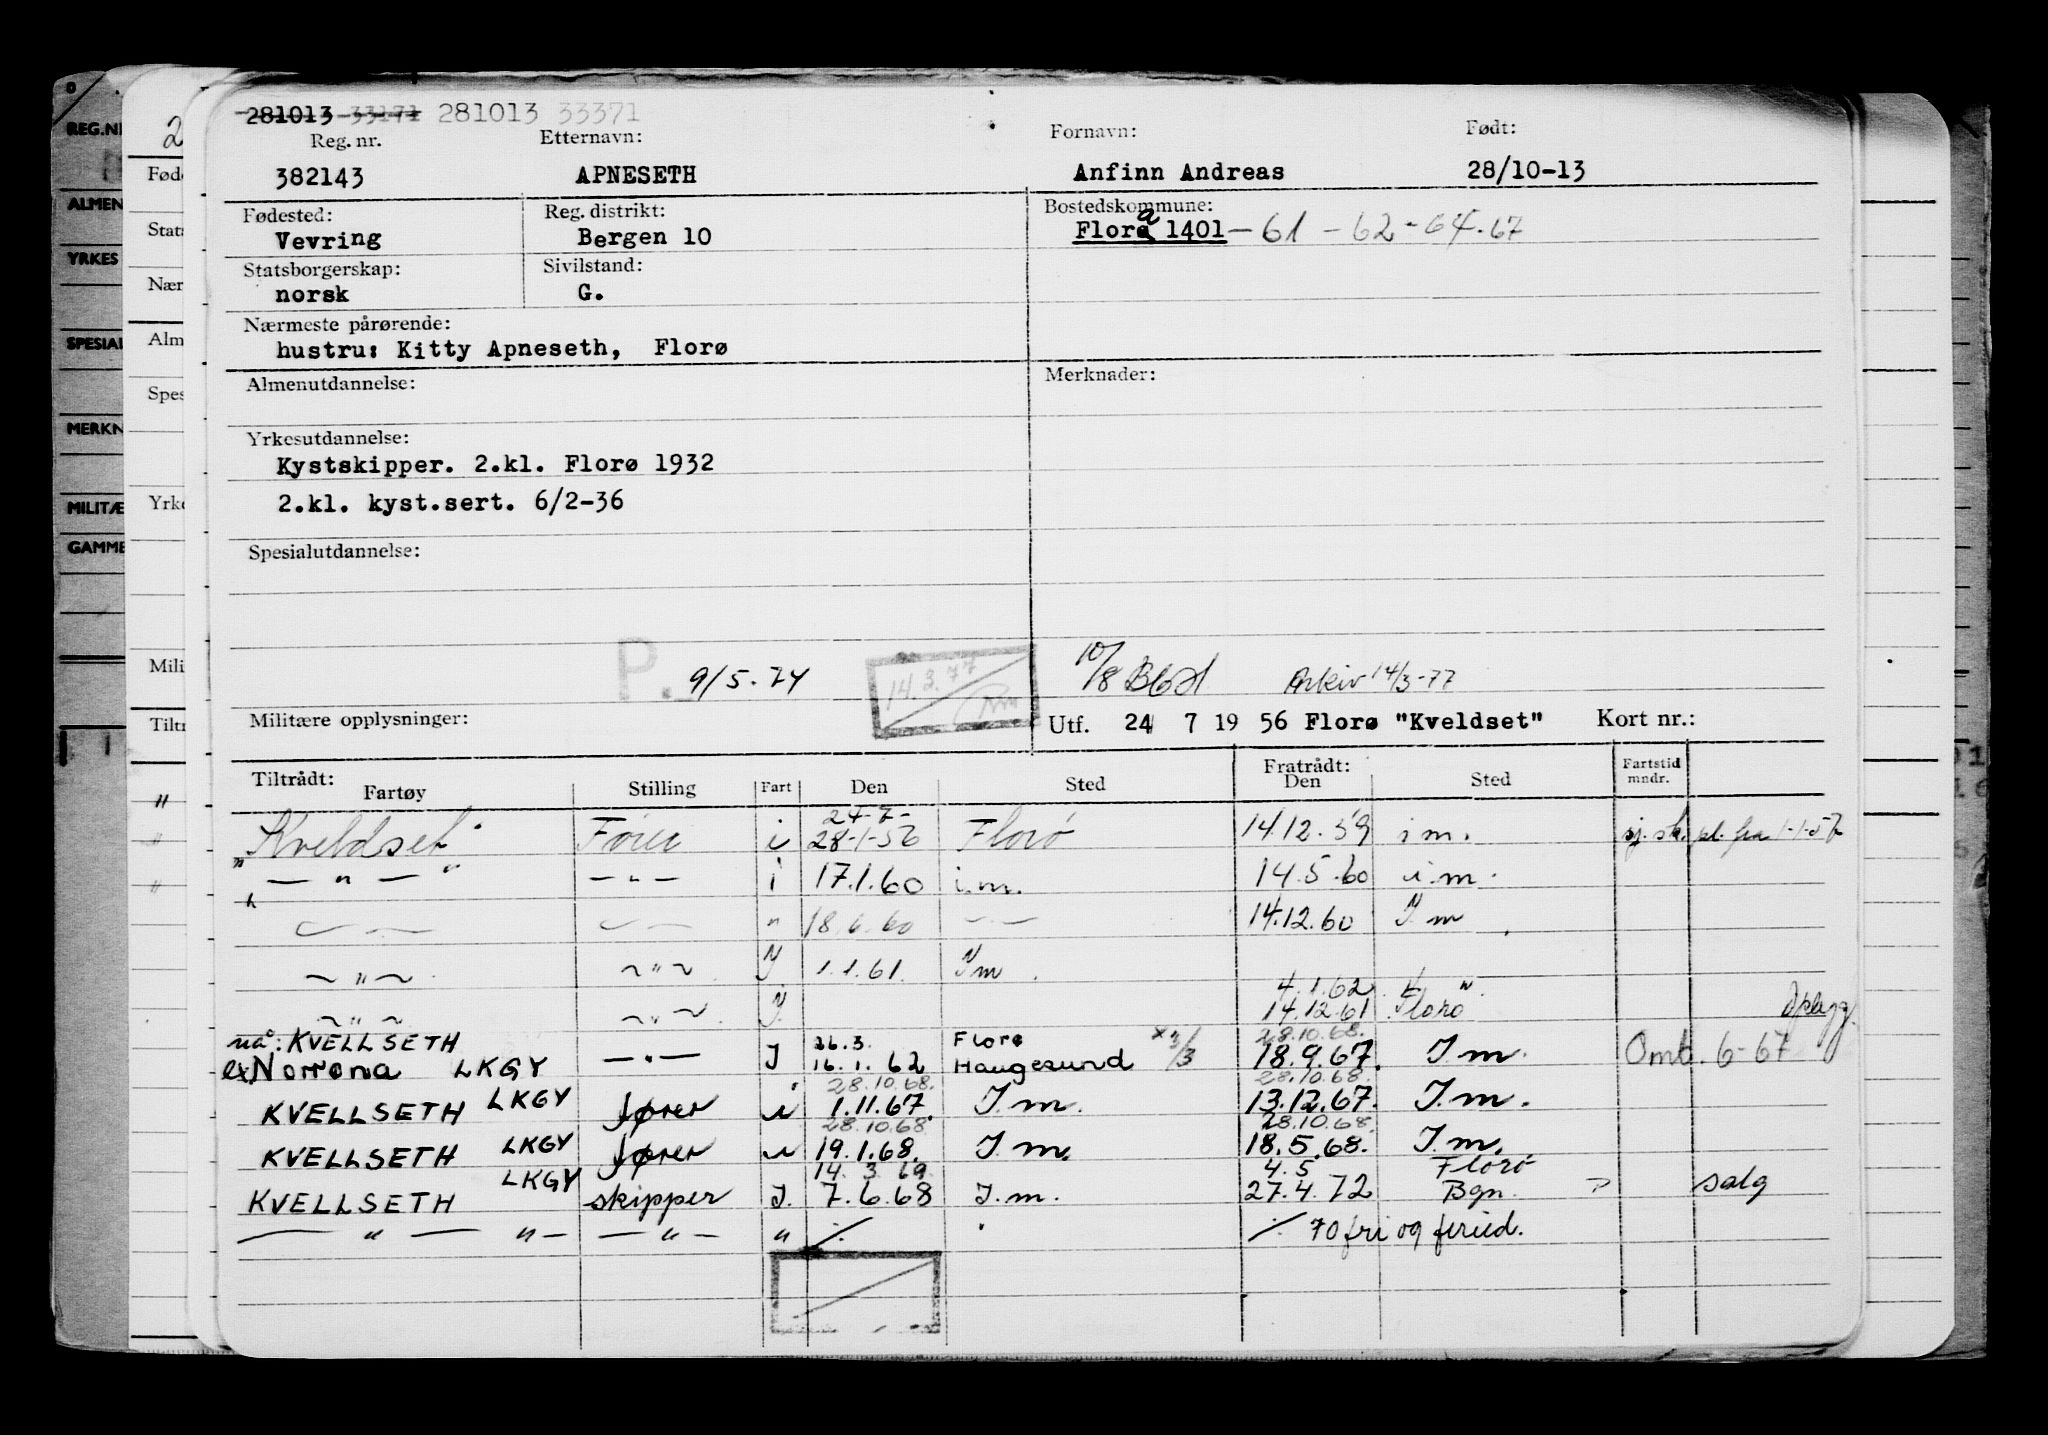 281013 33171 281013 33371
Reg. nr. Etternavn: Fornavn: Født:
382143 APNESETH Anfinn Andreas 28/10-13
Fødested: Reg. distrikt: Bostedskommune:
Vevring Bergen 10 Flora 1401 - 61 - 62 - 64. 67
Statsborgerskap: Sivilstand:
norsk G.
Nærmeste pårørende:
hustru: Kitty Apneseth, Florø
Almenutdannelse: Merknader:
Yrkesutdannelse:
Kystskipper. 2.kl. Florø 1932
2.kl. kyst.sert. 6/2-36
Spesialutdannelse:
P. 9/5-74 14.3.77 10/8 Arkiv 14/3-77
Militære opplysninger: Utf. 24 7 19 56 Florø "Kveldset" Kort nr.:
Tiltrådt: Fratrådt: Fartstid
Fartøy Stilling Fart Den Sted Den Sted mndr.
24-7-
"Kveldset" Fører i 28-1-56 Florø 14.12.59 i m. sj. sk. pl. fra 1-1-57
" — " — " — " — i 17.1.60 i.m. 14.5.60 i.m.
— " — " 18.6.60 — " — 14.12.60 I m
~ " ~ ~ " ~ I 1.1.61. I m
4.1.62 "
~ " ~ ~ " ~ I. 14.12.61 Florø Opplagg.
nå: KVELLSETH 26.3. Florø x 3/3 28.10.68.
ex Norrøna LKGY — " — I 16.1.62 Haugesund 18.9.67. I m. Omb. 6-67
28.10.68. 28.10.68
KVELLSETH LKGY fører i 1.11.67. I.m. 13.12.67. I.m.
28.10.68 28.10.68.
KVELLSETH LKGY fører i 19.1.68. I.m. 18.5.68. I.m.
14.3.69 4.5 Florø
KVELLSETH LKGY skipper I. 7.6.68 I.m. 27.4.72 Bgn. salg
— " — " — — " — " ./. ./. 70 fri og feried.
REG.NR
ALMEN
YRKES
SPESIAL
MERKN
MILITÆ
GAMME
2
Føde
Stats
Nær
Alm
Spes
Yrke
Mili
Tiltr